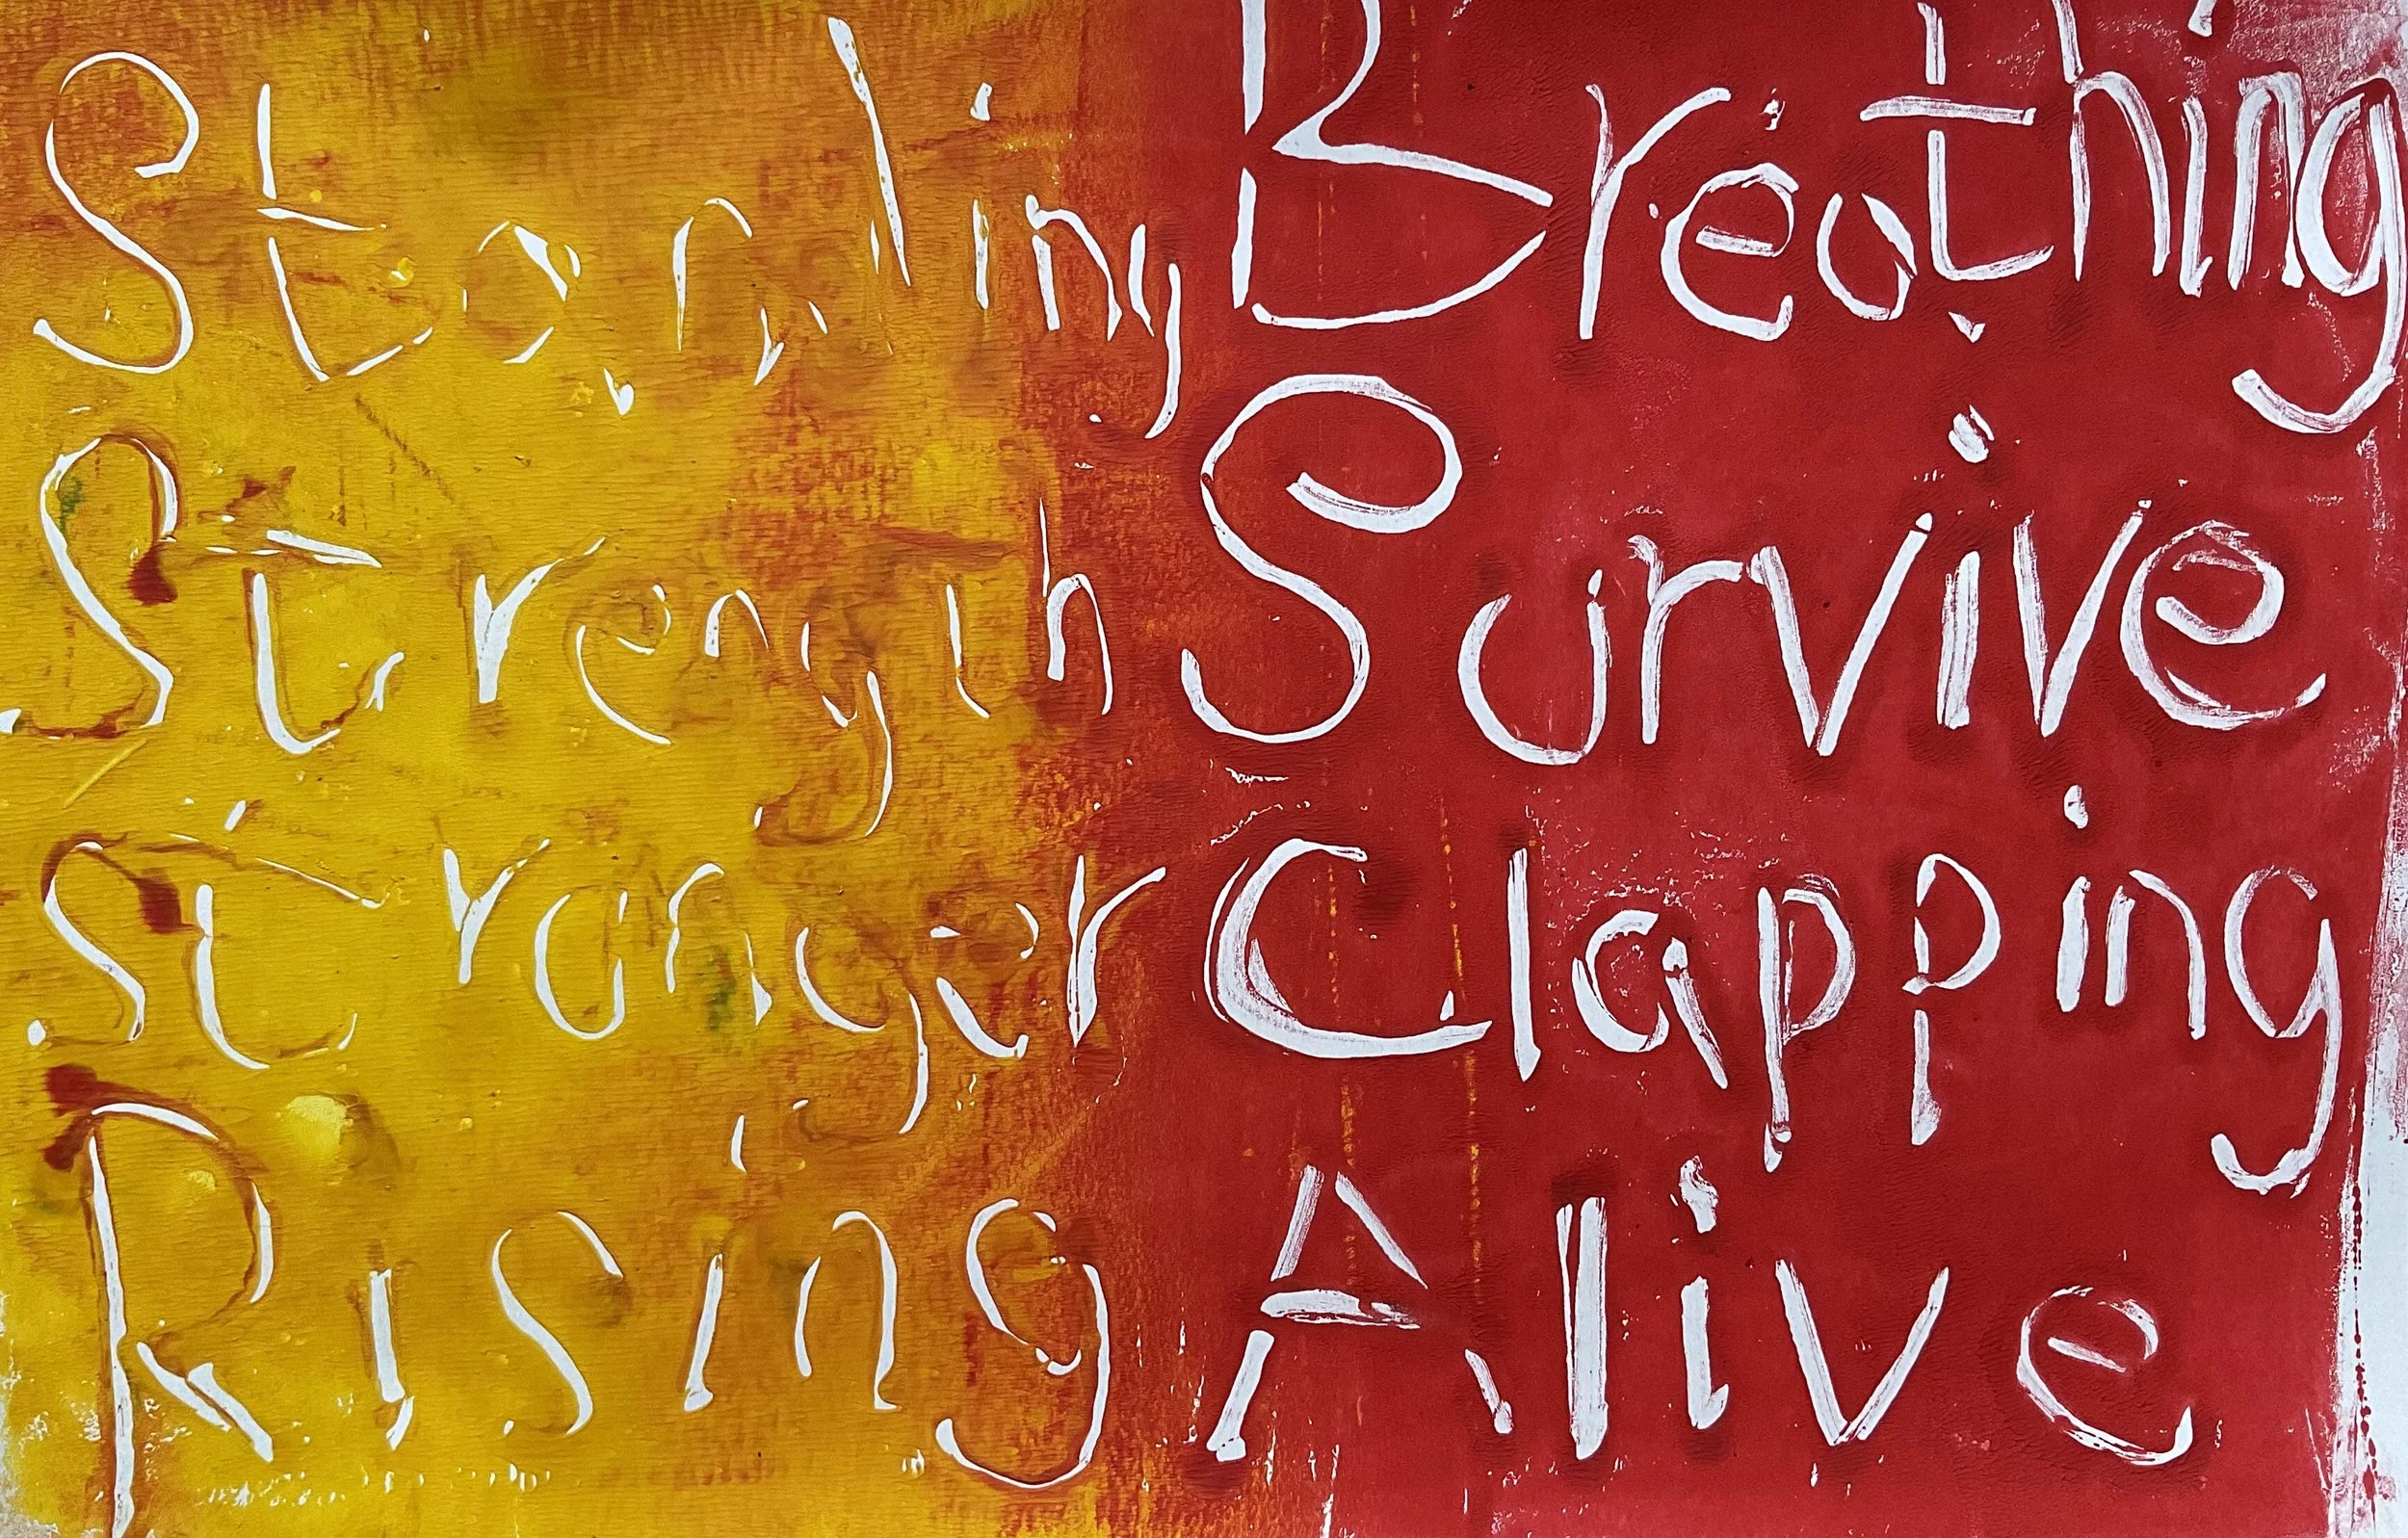 Standing Breathing
Strength Survive
Stronger Clapping
Rising Alive